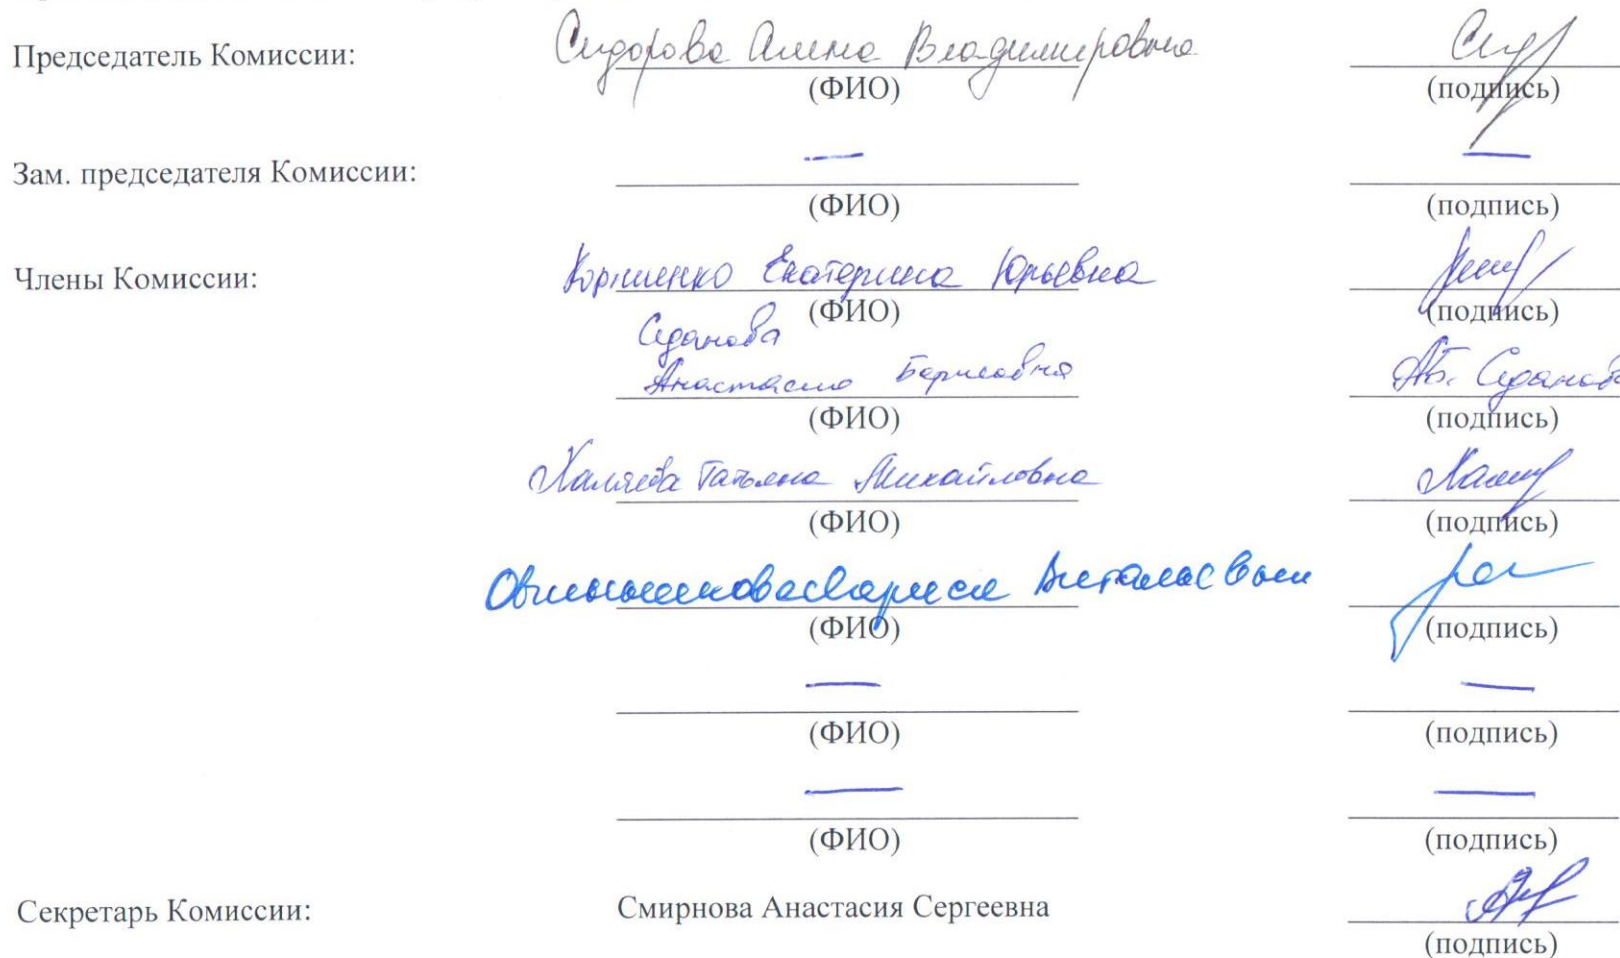 Председатель Комиссии: Сидорова Алена Владимировна
(ФИО) (подпись)
Зам. председателя Комиссии: — —
(ФИО) (подпись)
Члены Комиссии: Екатерина Юрьевна
(ФИО) (подпись)
Седанова
Анастасия Борисовна А.Б. Седанова
(ФИО) (подпись)
Татьяна Михайловна
(ФИО) (подпись)
(ФИО) (подпись)
— —
(ФИО) (подпись)
— —
(ФИО) (подпись)
Секретарь Комиссии: Смирнова Анастасия Сергеевна
(подпись)